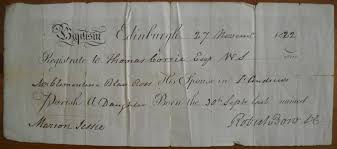 Baptism Edinburgh 27 November 1822
Registrate to Thomas Corrie Esqr W.S.
Mrs Clementina Blair Ross His Spouse in St Andrews
Parish A Daughter Born the 30th Septr last named
Marion Jessie Robert